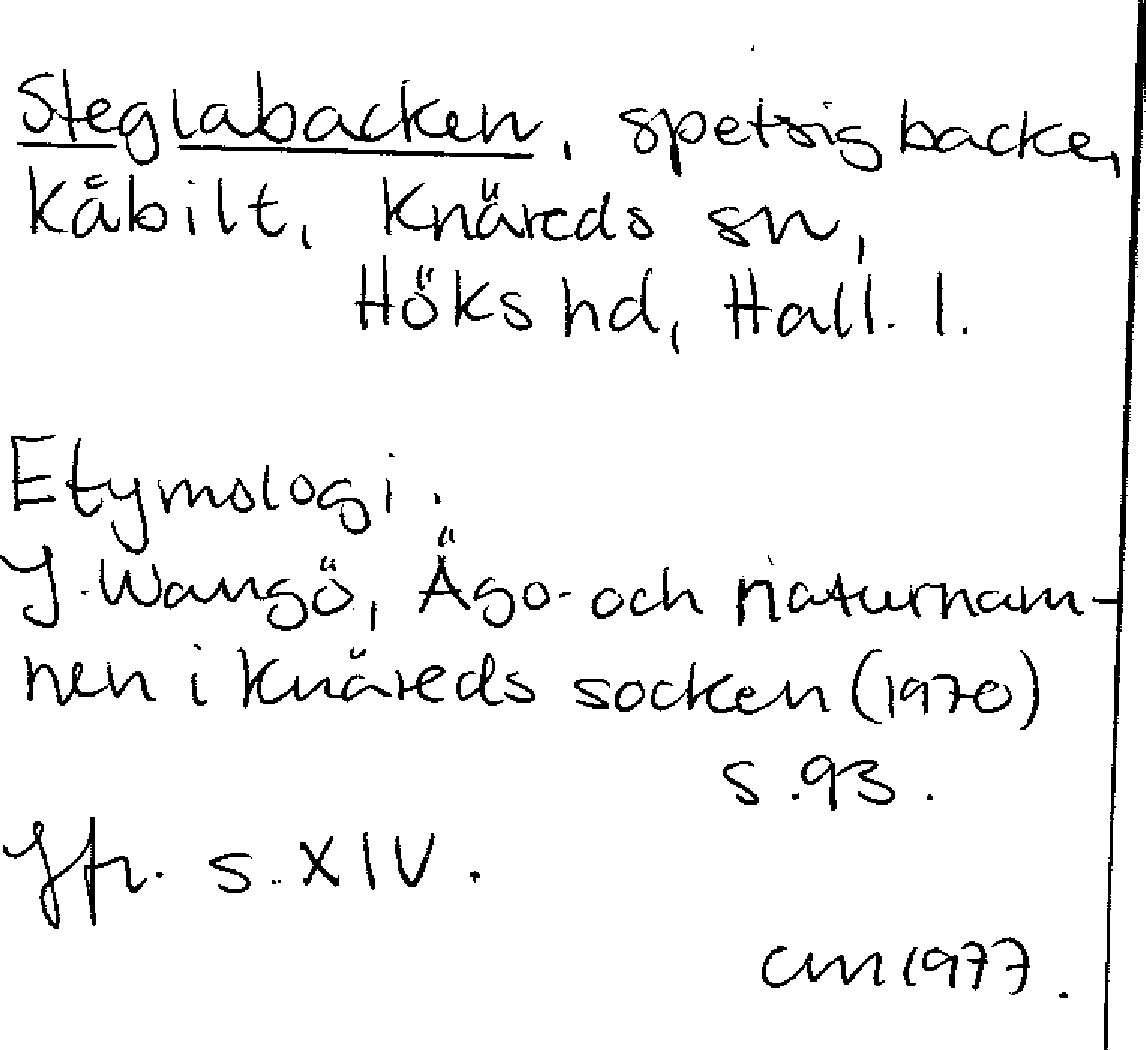 Steglabacken, spetsig backe,
Kåbilt, Knäreds sn,
Höks hd, Hall. l.
Etymologi.
J. Wangö, Ägo- och naturnam-
nen i Knäreds socken (1970)
s. 93.
Jfr. s. XIV.
CM 1977.